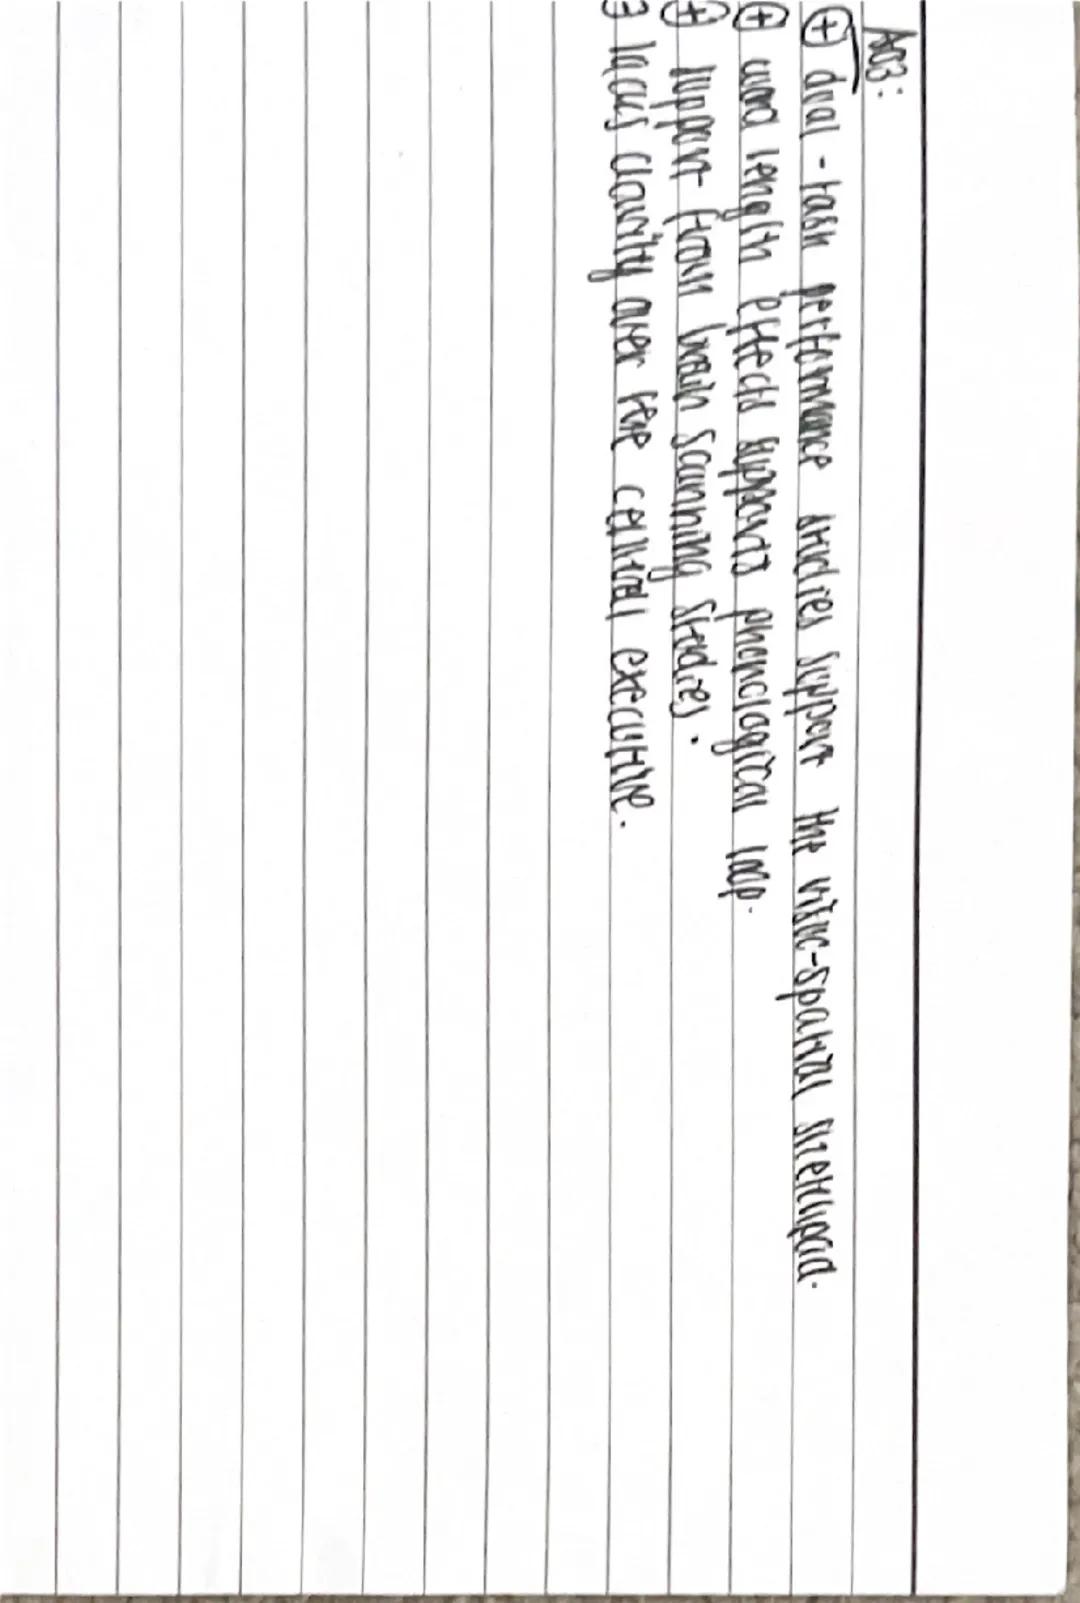 AO3:
⊕ dual-task performance studies support the visuo-spatial sketchpad.
⊕ word length effects supports phonological loop.
⊕ support from brain scanning studies.
lacks clarity over the central executive.